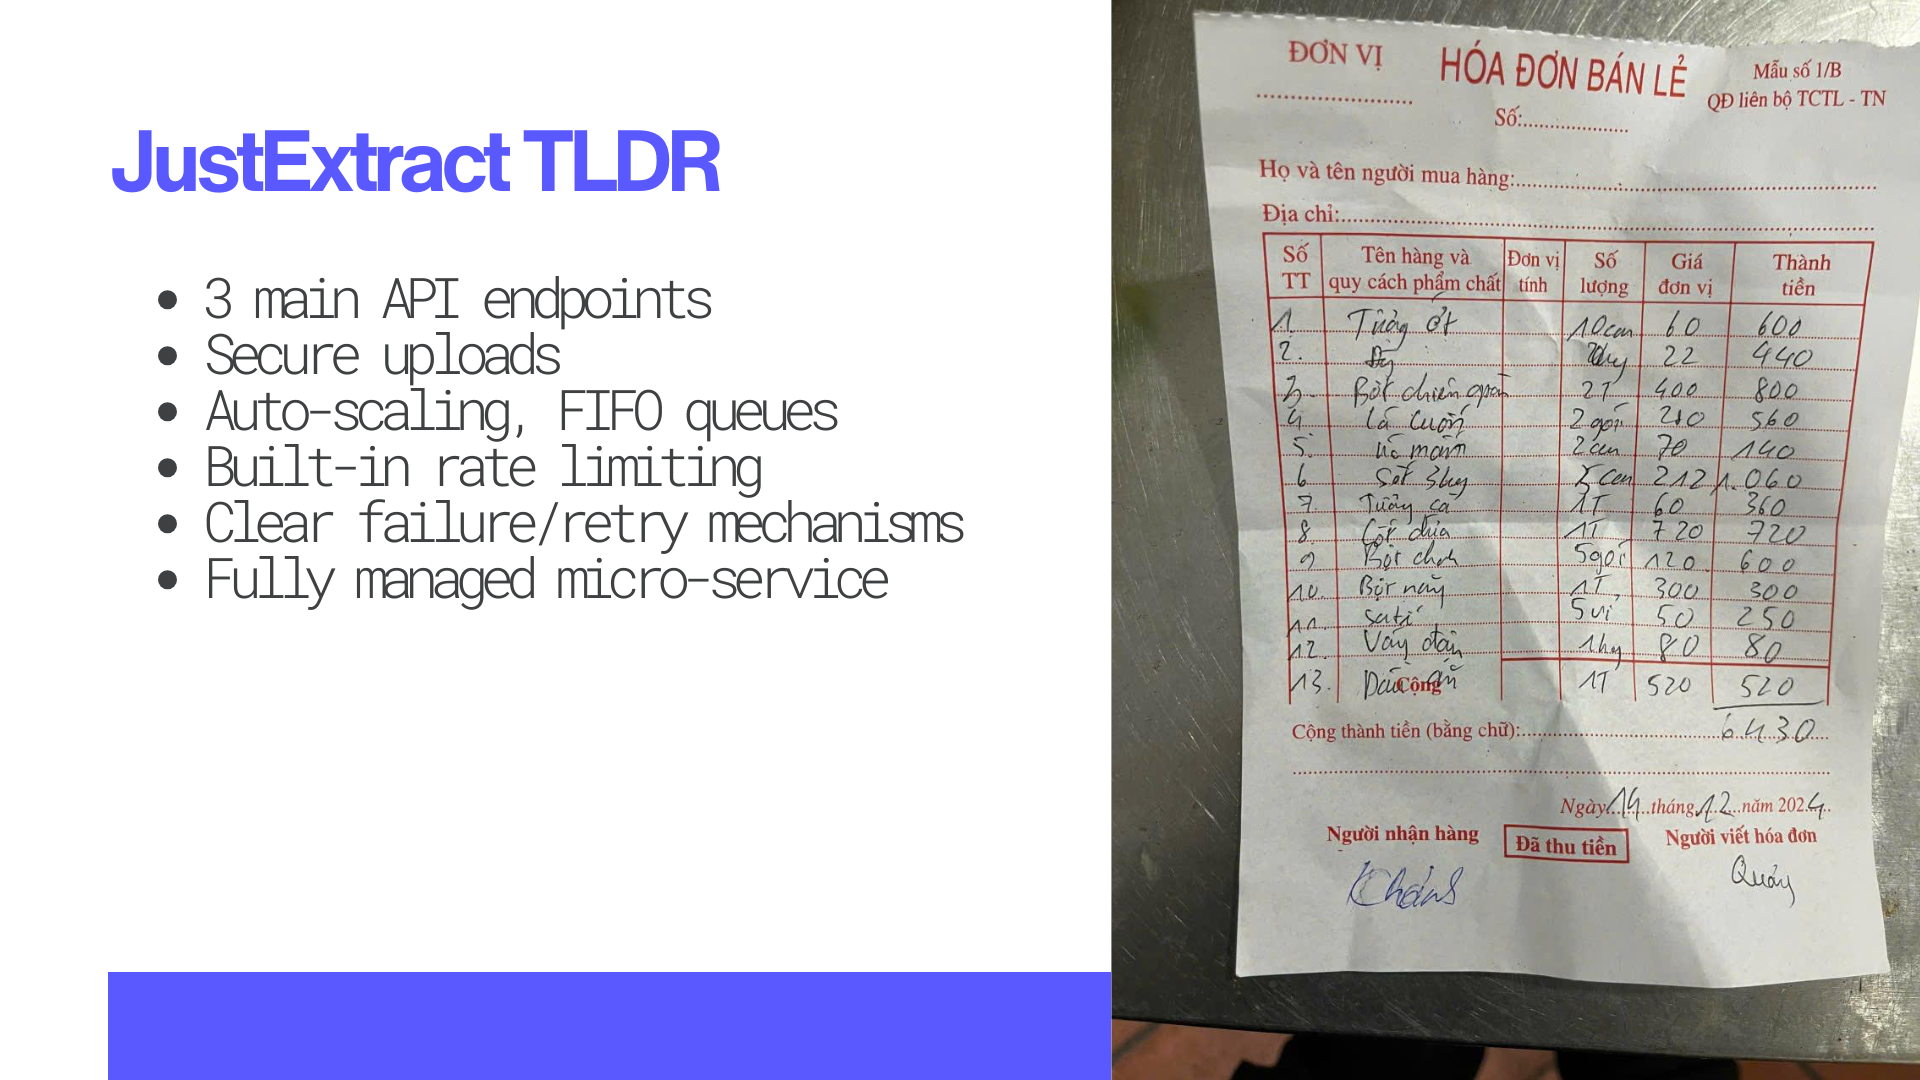 JustExtract TLDR
3 main API endpoints
Secure uploads
Auto-scaling, FIFO queues
Built-in rate limiting
Clear failure/retry mechanisms
Fully managed micro-service
ĐƠN VỊ HÓA ĐƠN BÁN LẺ Mẫu số 1/B
QĐ liên bộ TCTL - TN
Số:
Họ và tên người mua hàng:
Địa chỉ:
Số TT Tên hàng và quy cách phẩm chất Đơn vị tính Số lượng Giá đơn vị Thành tiền
1. Tương ớt 10 can 60 600
2. 22 440
3. Bột chiên 2T 400 800
4 Lá cuốn 2 gói 560
5. 2 can 70 140
6 Sốt 3kg can 212 1.060
7. Tương cà 1T 60 360
8. 1T 720 720
9 Bột 5 gói 120 600
10. Bột 1T 300 300
11. 5 vỉ 50 250
12. 1kg 80 80
13. Dầu ăn 1T 520 520
Cộng
Cộng thành tiền (bằng chữ): 6430
Ngày 14 tháng 12 năm 2024
Người nhận hàng Đã thu tiền Người viết hóa đơn